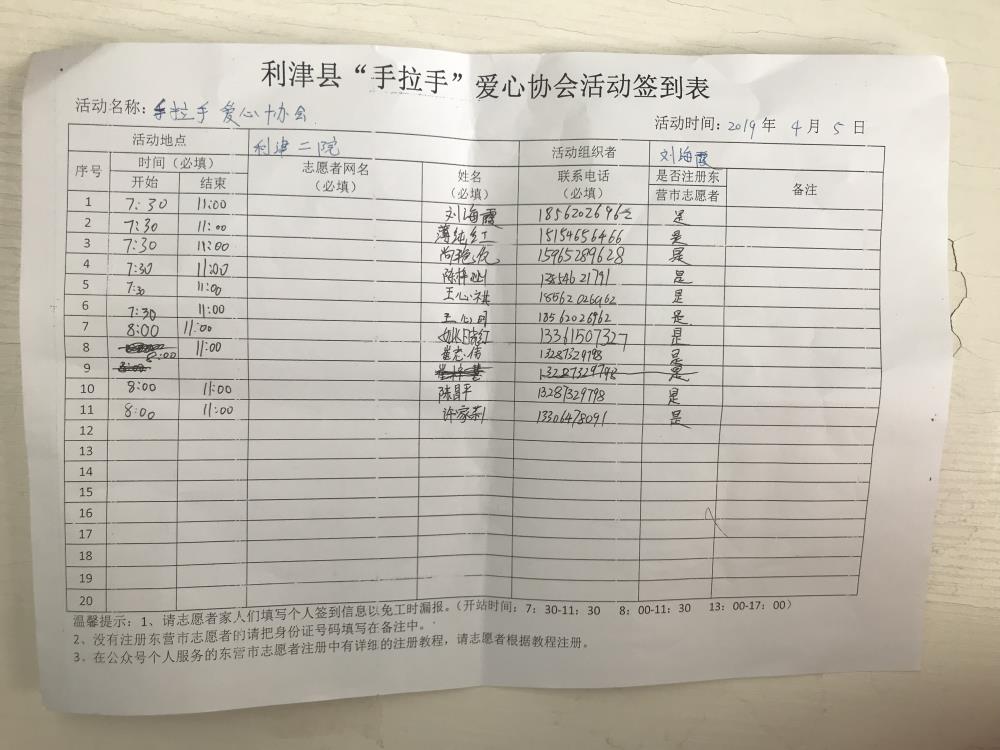 利津县“手拉手”爱心协会活动签到表
活动名称：手拉手 爱心协会
活动时间：2019年 4月 5日
活动地点 利津二院 活动组织者 刘海霞
序号 时间（必填） 志愿者网名（必填） 姓名（必填） 联系电话（必填） 是否注册东营市志愿者 备注
开始 结束
1 7:30 11:00 刘海霞 18562026962 是
2 7:30 11:00 薄纯红 15154656466 是
3 7:30 11:00 15965289628 是
4 7:30 11:00 13854621791 是
5 7:30 11:00 王心祺 18562026962 是
6 7:30 11:00 王心 18562026962 是
7 8:00 11:00 姚晓红 13361507327 是
8 8:00 11:00 崔志倩 13287329798 是
9 8:00 13287329798 是
10 8:00 11:00 陈昌平 13287329798 是
11 8:00 11:00 许家荣 13306478091 是
12
13
14
15
16
17
18
19
20
温馨提示：1、请志愿者家人们填写个人签到信息以免工时漏报。（开站时间：7：30-11：30 8：00-11：30 13：00-17：00）
2、没有注册东营市志愿者的请把身份证号码填写在备注中。
3、在公众号个人服务的东营市志愿者注册中有详细的注册教程，请志愿者根据教程注册。